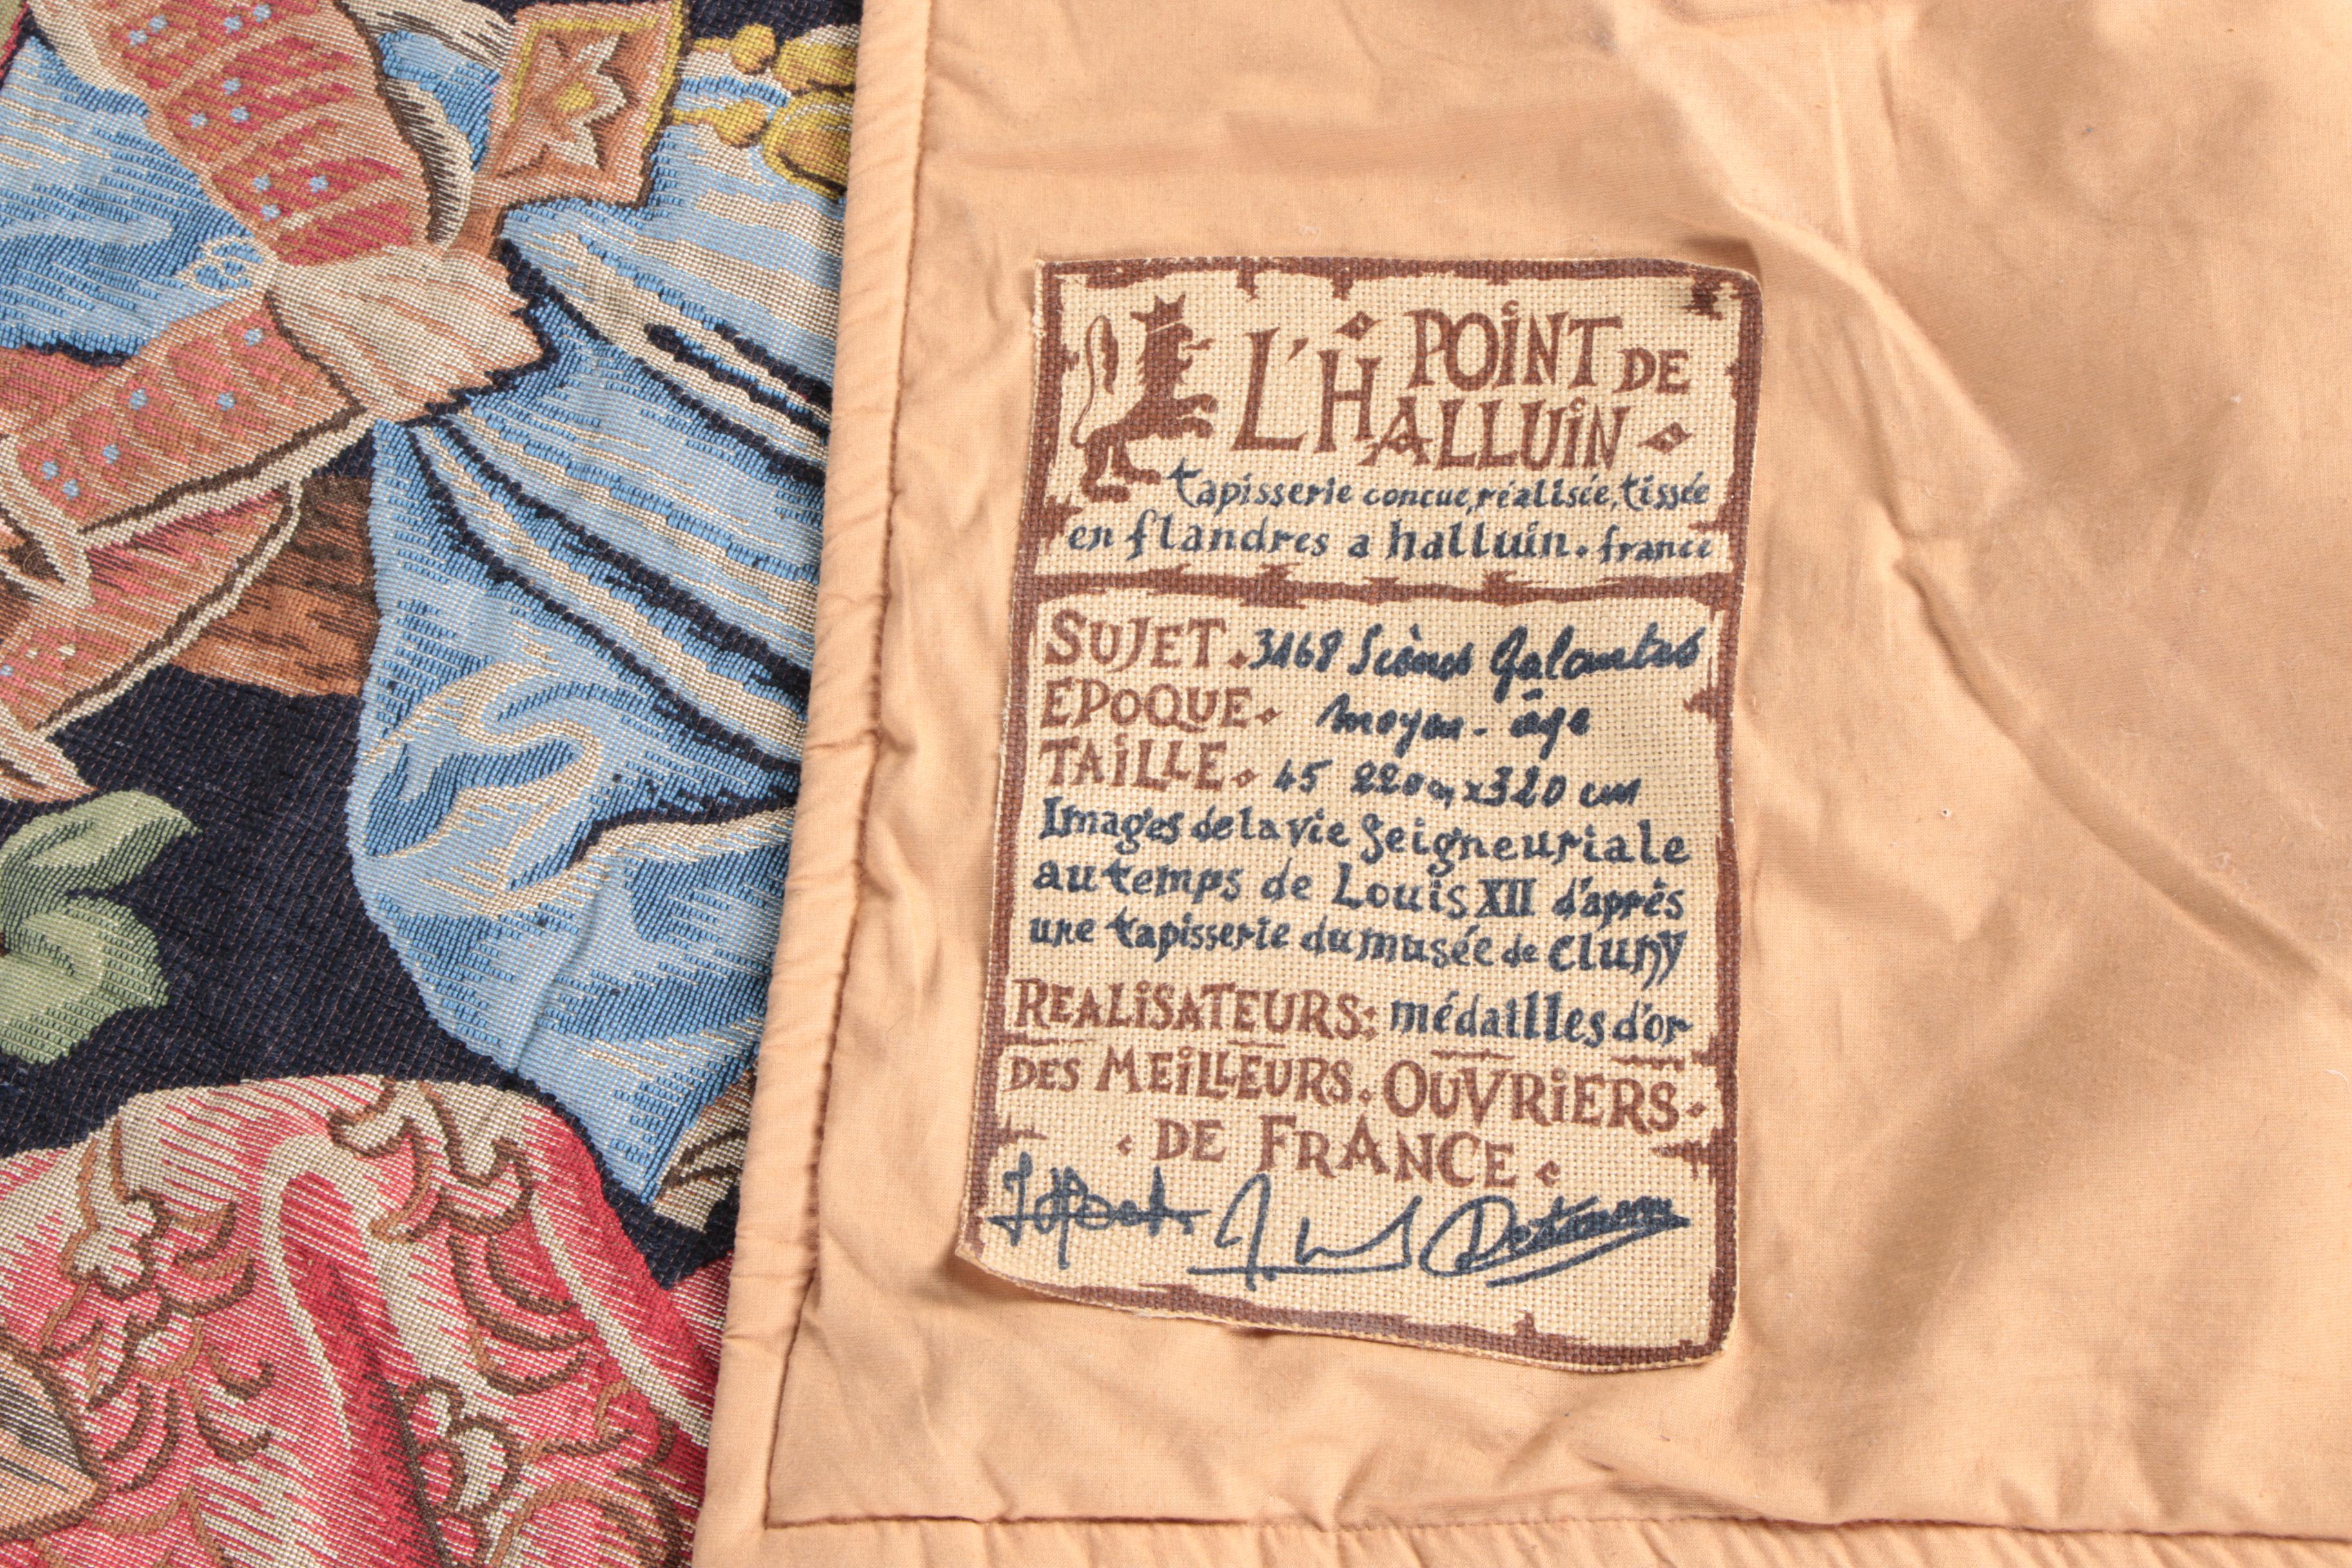 POINT DE
L'HALLUIN
tapisserie concue, réalisée, tissée
en flandres a halluin. france
SUJET. 3168 Scènes Galantes
EPOQUE. moyen-âge
TAILLE. 45 220 x 320 cm
Images de la vie Seigneuriale
au temps de Louis XII d'après
une tapisserie du musée de Cluny
REALISATEURS: médailles d'or
DES MEILLEURS. OUVRIERS.
DE FRANCE